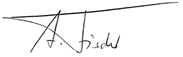 A. Fischer